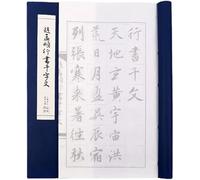 行書千文
天地玄黃宇宙洪
荒日月盈昃辰宿
列張寒來暑往秋
趙孟頫行書千字文